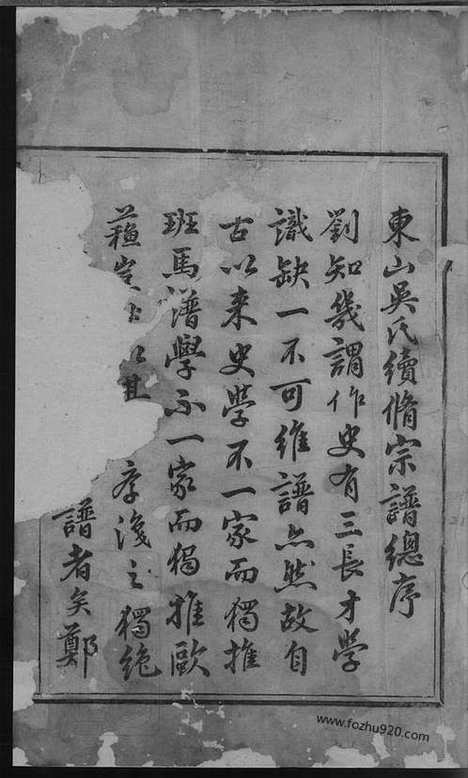 東山吳氏續脩宗譜總序
劉知幾謂作史有三長才學
識缺一不可維譜亦然故自
古以来史學不一家而獨推
班馬譜學不一家而獨推歐
蘓豈 其 序後之獨絶
譜者矣鄭
www.fozhu920.com